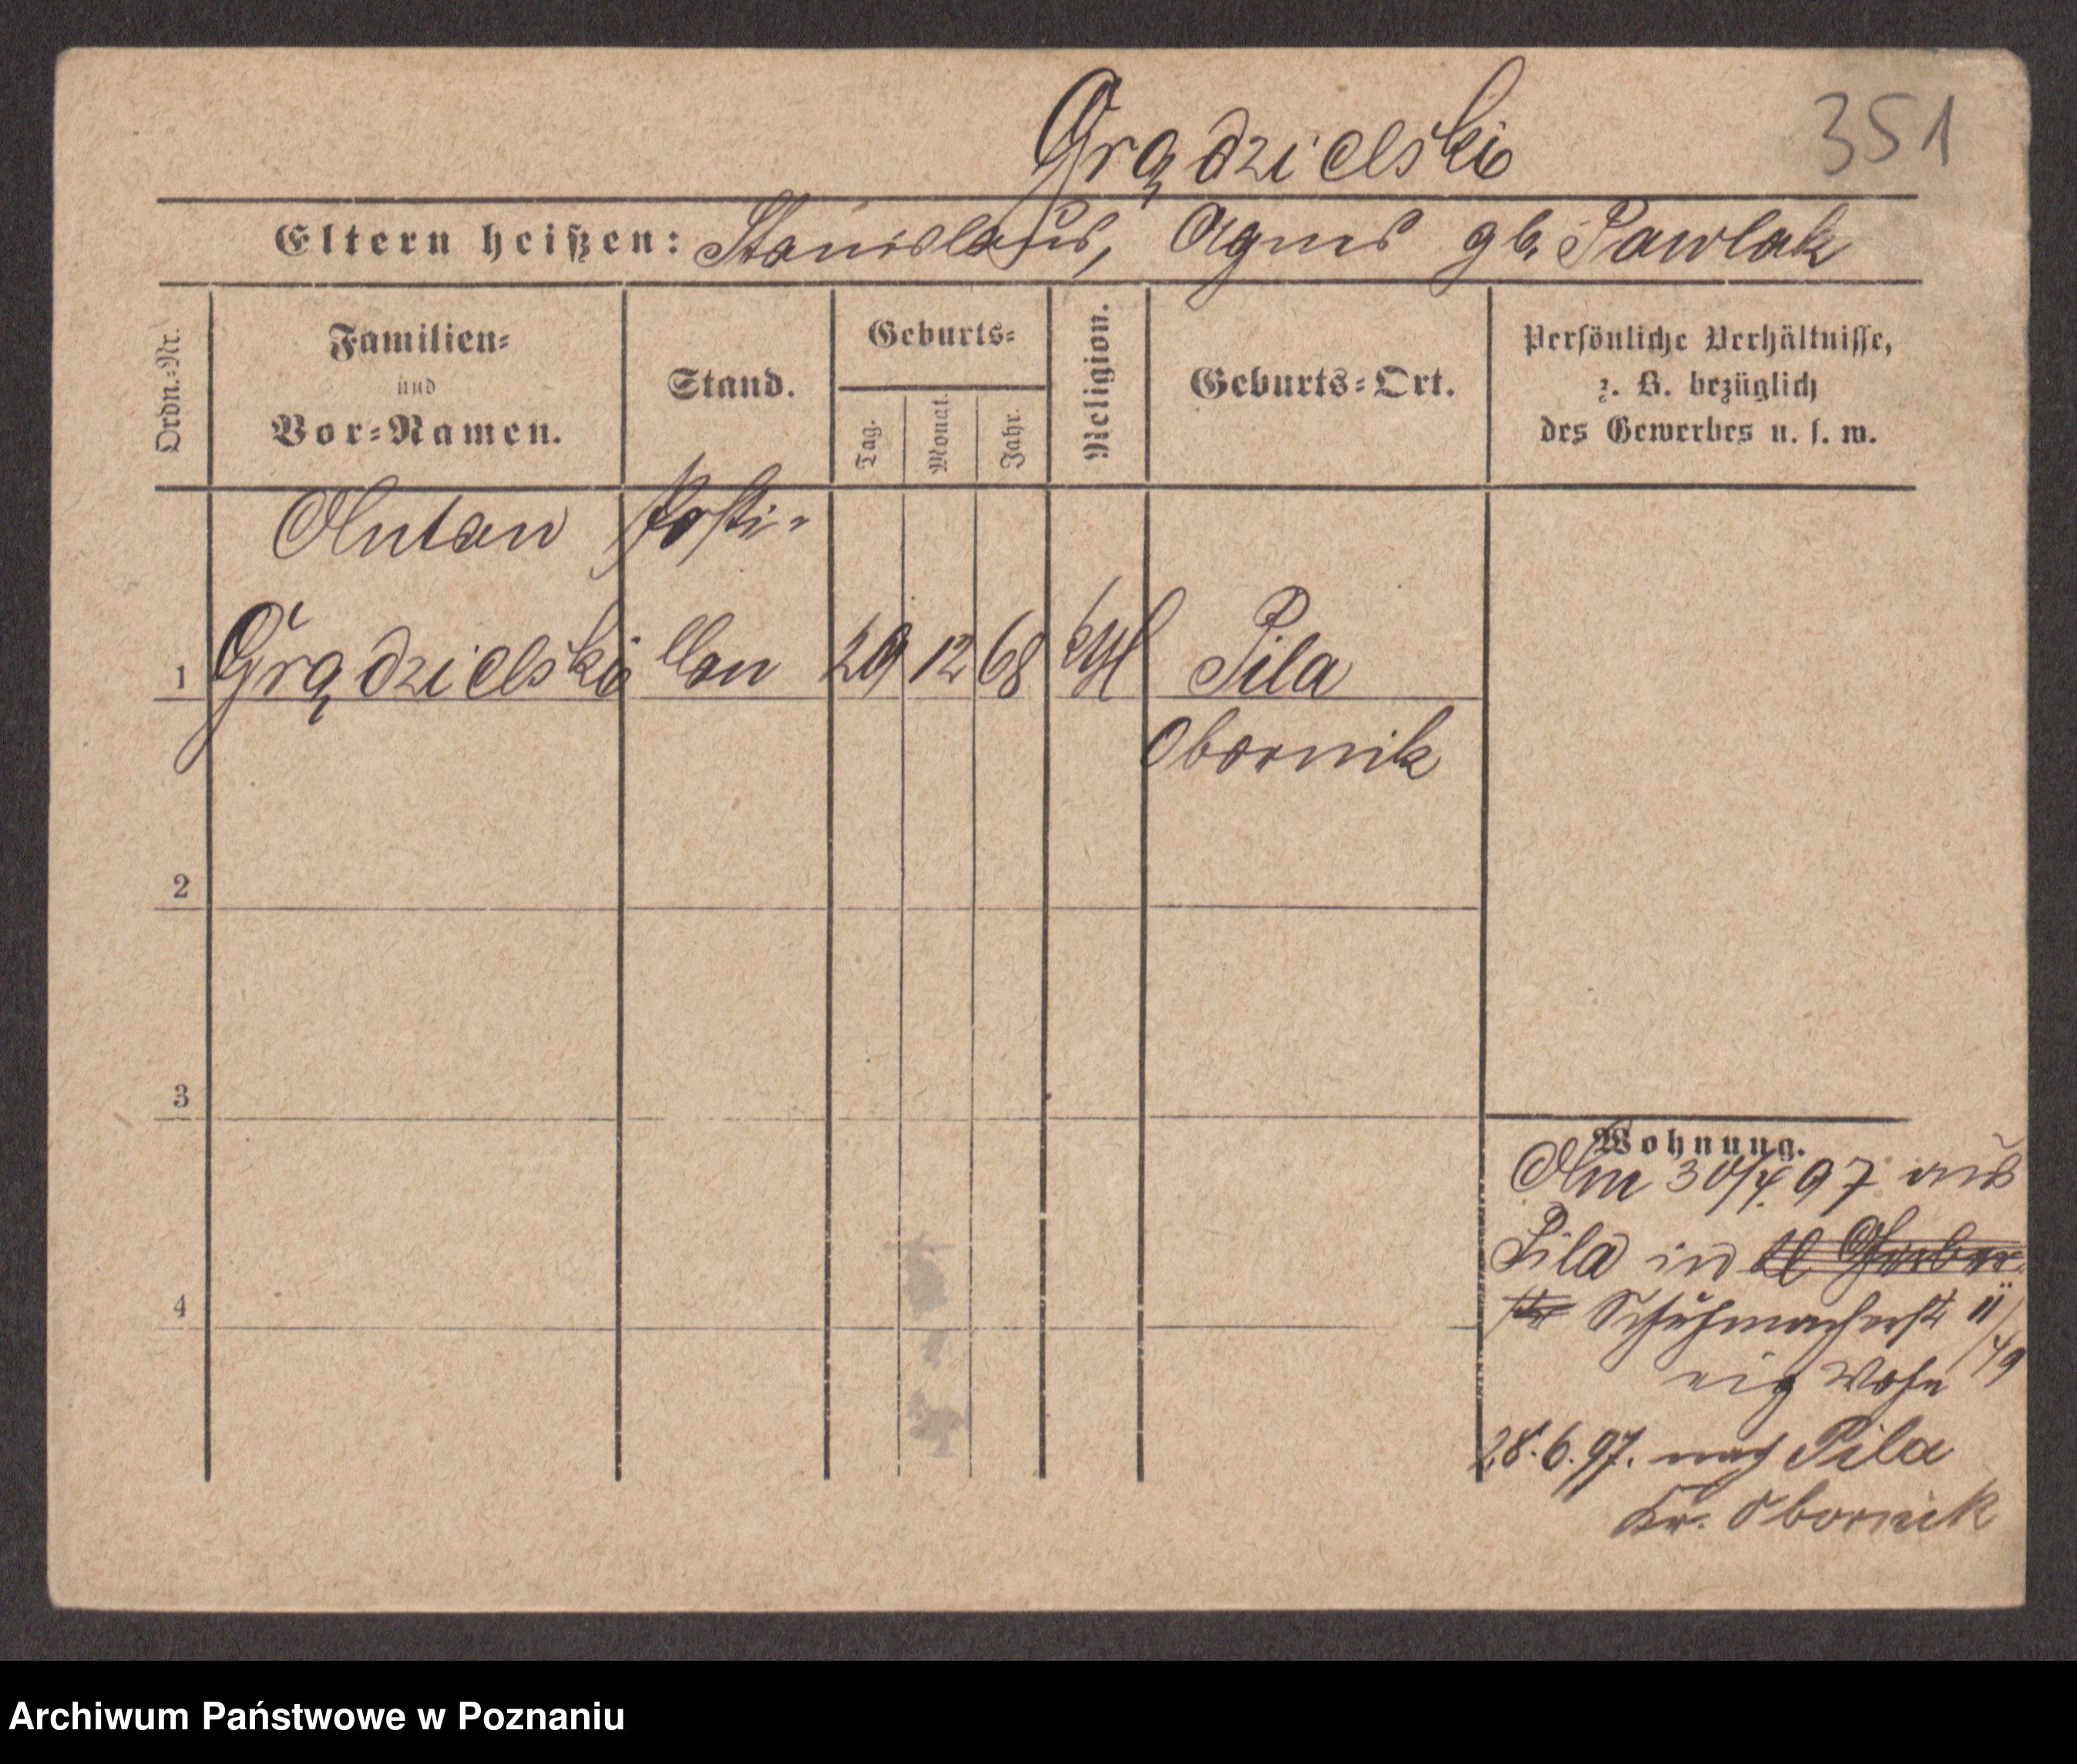 Grądzielski 351
Eltern heißen: Stanislaus, Agnes gb. Pawlak
Ordn.=Nr.
Familien=
und
Vor=Namen.
Stand.
Geburts=
Tag.
Monat.
Jahr.
Religion.
Geburts=Ort.
Persönliche Verhältnisse,
z. B. bezüglich
des Gewerbes u. s. w.
Anton Posti=
1 Grądzielski llon 29 12 68 Pila
Obornik
2
3
4
Wohnung.
Am 30/4 97 aus
Pila in Kl Gerber
str Schuhmacherstr 11/
eig Wohn /49
28.6.97. nach Pila
Kr. Obornik
Archiwum Państwowe w Poznaniu